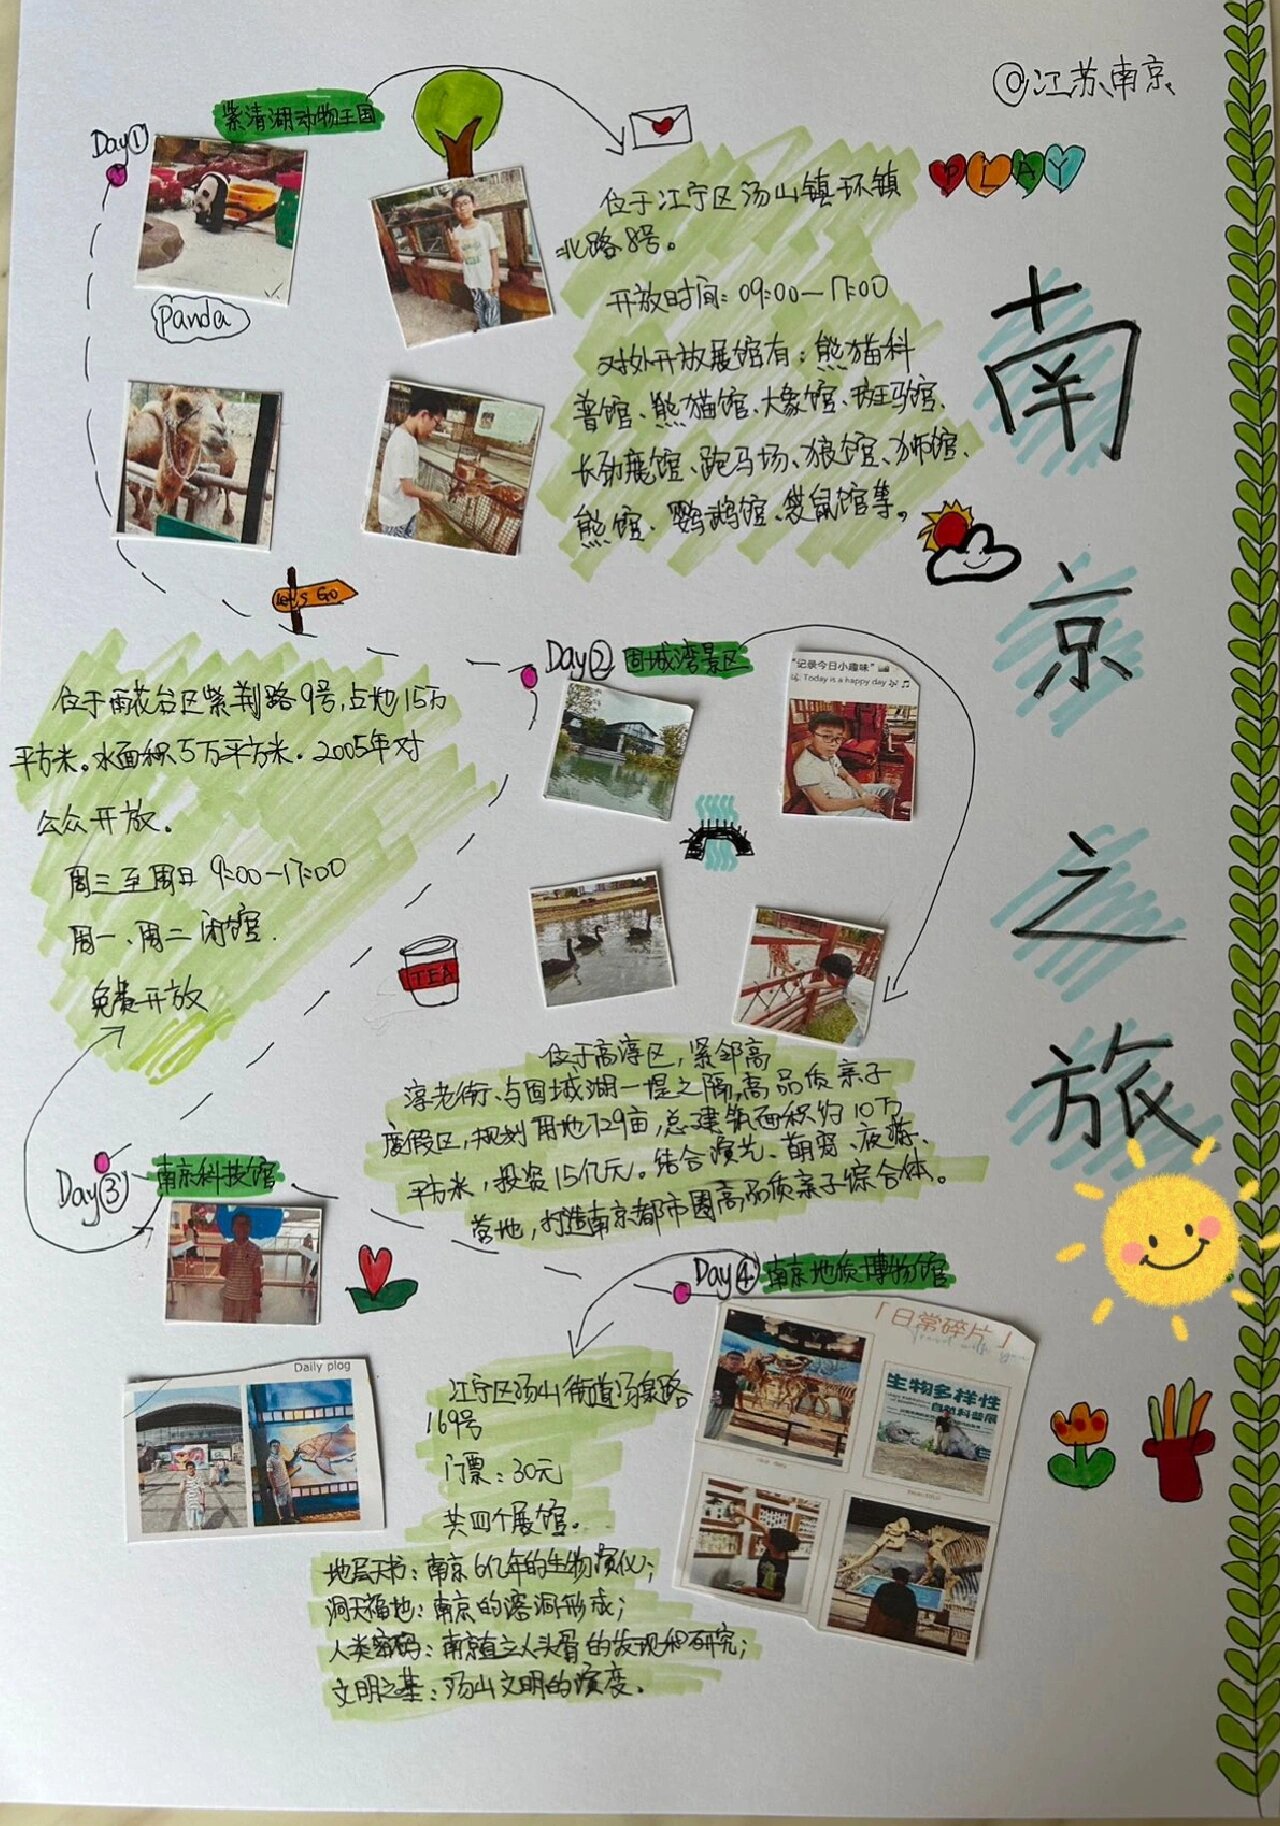 @江苏南京
PLAY
南京之旅
Day①
紫清湖动物王国
Panda
位于江宁区汤山镇环镇
北路8号。
开放时间：09:00—17:00
对外开放展馆有：熊猫科
普馆、熊猫馆、大象馆、斑马馆、
长劲鹿馆、跑马场、狼馆、狮馆、
熊馆、鹦鹉馆、袋鼠馆等。
Let's Go
Day②
固城湾景区
"记录今日小趣味"
Today is a happy day
位于高淳区，紧邻高
淳老街、与固城湖一堤之隔，高品质亲子
度假区，规划用地729亩，总建筑面积约10万
平方米，投资15亿元。结合演艺、萌宠、夜游、
营地，打造南京都市圈高品质亲子综合体。
TEA
Day③
南京科技馆
位于雨花台区紫荆路9号，占地15万
平方米。水面积5万平方米。2005年对
公众开放。
周三至周日 9:00—17:00
周一、周二闭馆.
免费开放
Daily plog
Day④
南京地质博物馆
「日常碎片」
Travel with you
生物多样性
自然科普展
江宁区汤山街道汤泉路
169号
门票：30元
共四个展馆.
地层天书：南京6亿年的生物演化；
洞天福地：南京的溶洞形成；
人类密码：南京直立人头骨的发现和研究；
文明之基：汤山文明的演变.